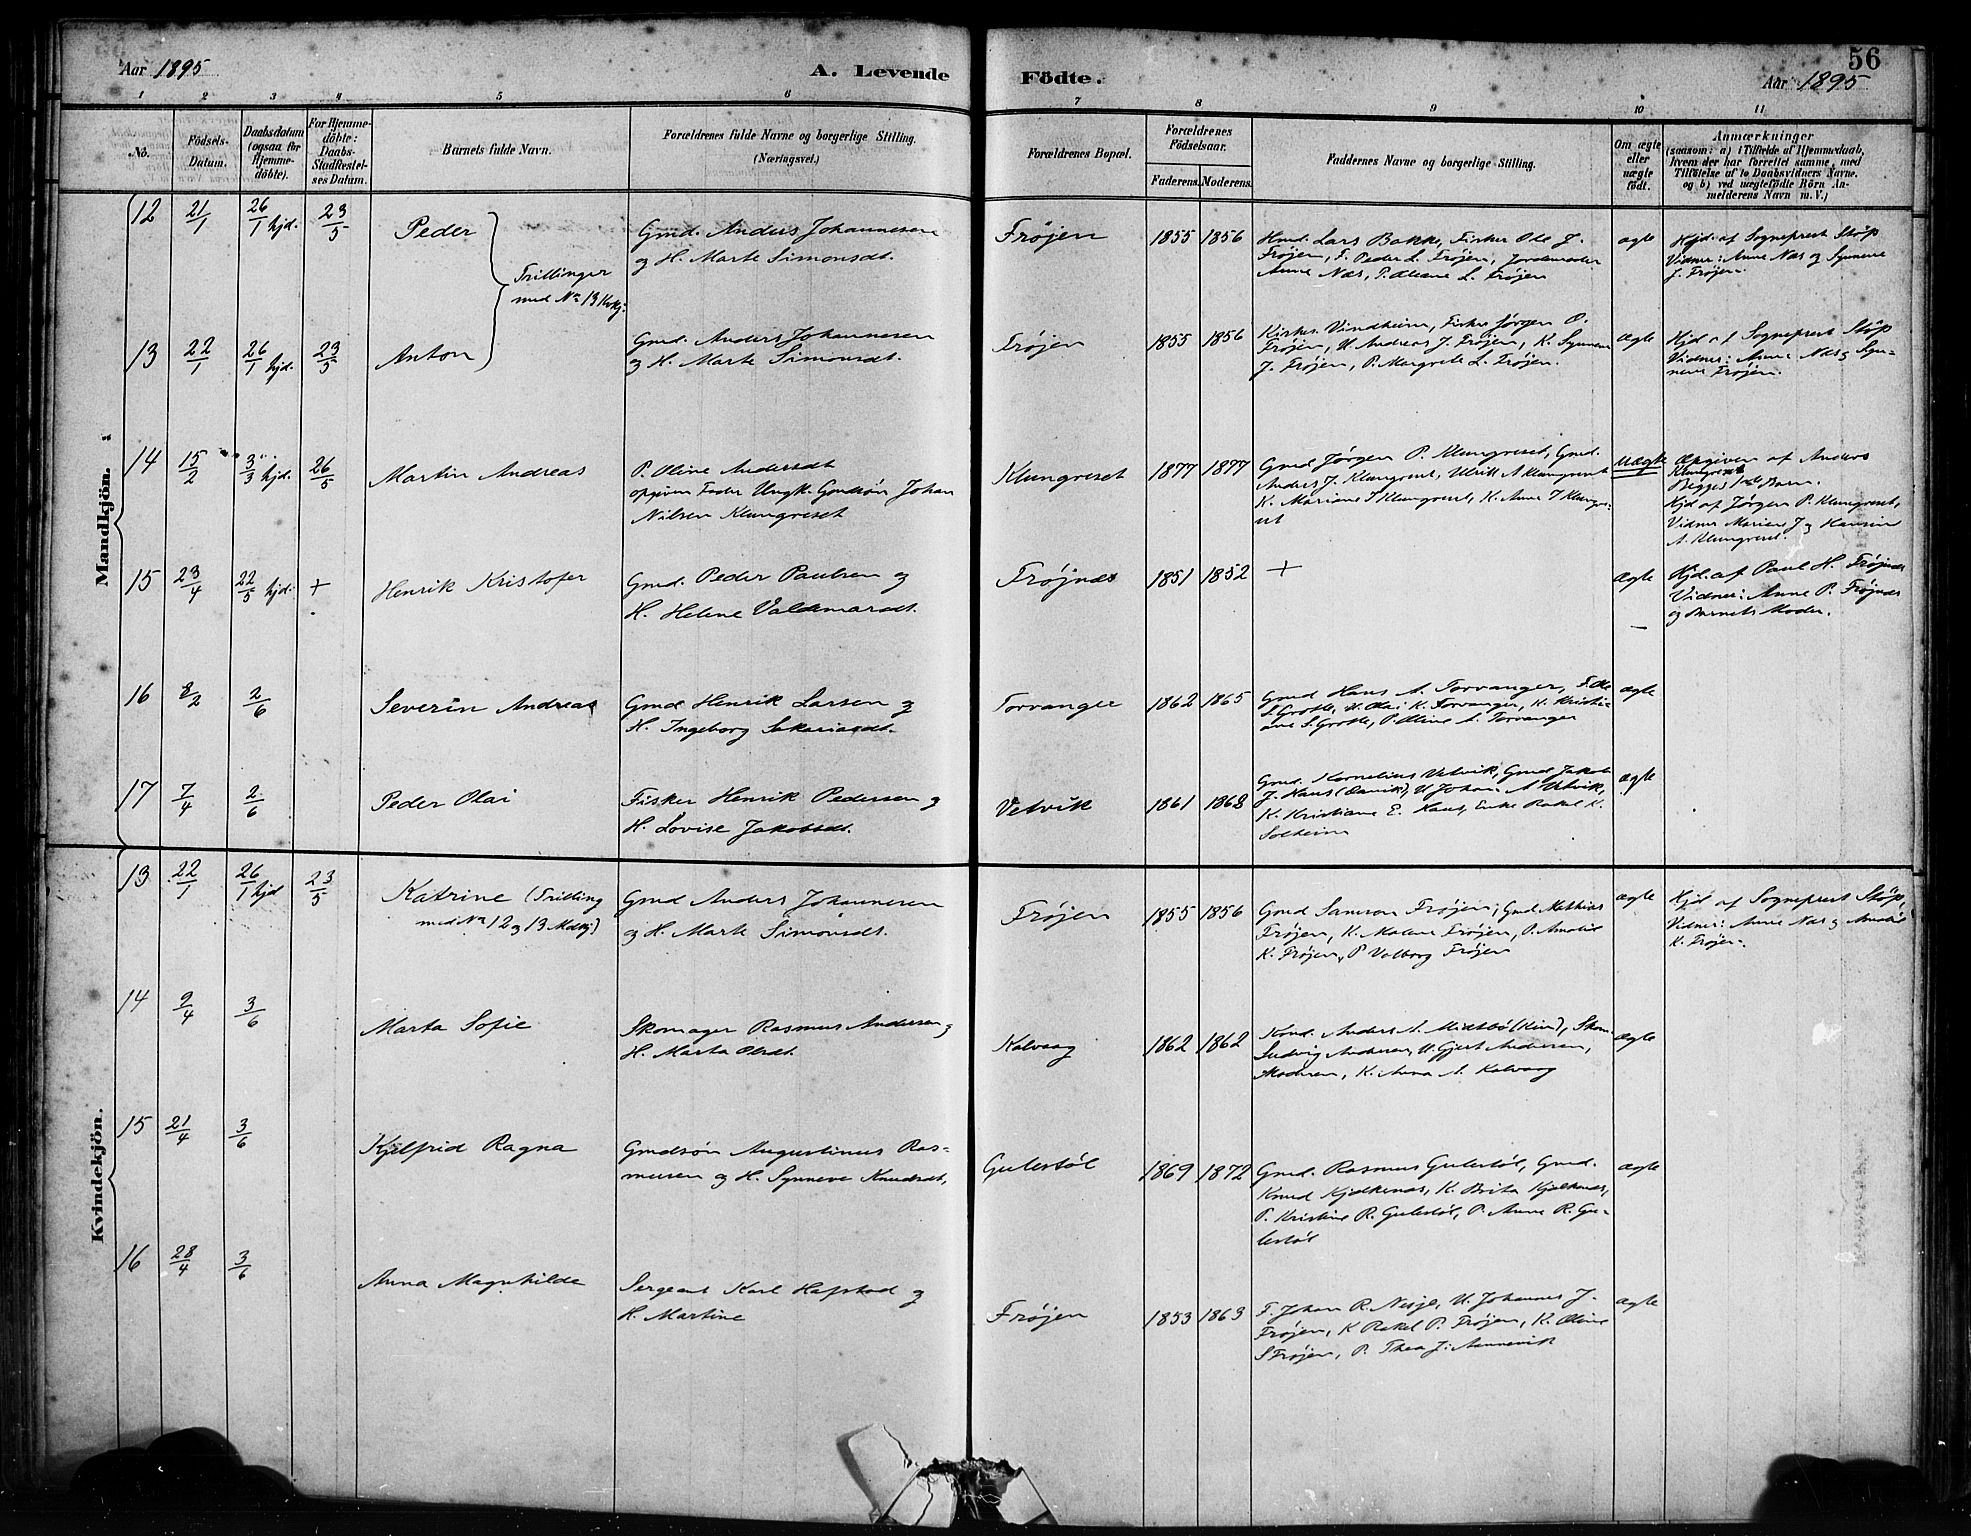 56
Aar 1895
A. Levende
Födte.
Aar 1895
1 2 3 4 5 6 7 8 9 10 11
No.
Födsels-Datum.
Daabsdatum (ogsaa for Hjemmedöbte).
For Hjemmedöbte: Daabs-Stadfestelses Datum.
Barnets fulde Navn.
Forældrenes fulde Navne og borgerlige Stilling.
(Næringsvei.)
Forældrenes Bopæl.
Forældrenes Födselsaar.
Faderens. Moderens.
Faddernes Navne og borgerlige Stilling.
Om ægte eller uægte födt.
Anmærkninger
(saasom: a) i Tilfælde af Hjemmedaab, hvem der har forrettet samme, med Tilföielse af to Daabsvidners Navne. og b) ved uægtefödte Börn Anmelderens Navn m. V.)
Mandkjön.
12 21/1 26/1 hjd. 23/5 Peder
Trillinger
med No 13 Kvkj.
Gmd. Anders Johannesen
og H. Marte Simonsdt.
Frøjen 1855 1856
Gmd. Lars Bakke, Fisker Ole J.
Frøjen, F. Peder L. Frøjen, Jordemoder
Anne Næs, P. Oleane L. Frøjen
ægte
Hjd. af Sogneprest Støp
Vidner: Anne Næs og Synneve
J. Frøjen.
13 22/1 26/1 hjd. 23/5 Anton
Gmd. Anders Johannesen
og H. Marte Simonsdt.
Frøjen 1855 1856
Kirkes. Vindheim, Fisker Jørgen O.
Frøjen, U. Andreas J. Frøjen, K. Synneve
J. Frøjen, P. Margrete L. Frøjen.
ægte
Hjd af Sogneprest Støp
Vidner: Anne Næs og Syn-
neve Frøjen.
14 15/2 3/3 hjd. 26/5 Martin Andreas
P. Oline Andersdt
opgiven Fader Ungk. Gmdsøn Johan
Nilsen Klungreset
Klungreset 1877 1877
Gmd Jørgen P. Klungreset, Gmd.
Anders J. Klungreset, Ulrik A Klungreset
K. Mariane J Klungreset, K. Anne J Klungre-
set
uægte
Opgiven af Anders
Klungreset
Begges 1ste Barn.
Hjd af Jørgen P. Klungreset,
Vidner Mariane J og Hansine
A. Klungreset.
15 23/4 22/5 hjd. + Henrik Kristofer
Gmd. Peder Paulsen og
H. Helene Valdemarsdt.
Frøjnæs 1851 1852 +
ægte
Hjd. af Paul H. Frøjnæs
Vidner: Anne P. Frøjnæs
og Barnets Moder.
16 8/2 2/6 Severin Andreas
Gmd Henrik Larsen og
H. Ingeborg Sakariasdt.
Torvanger 1862 1865
Gmd Hans A. Torvanger, F. Ole
S. Grotle, U. Olai K. Torvanger, K. Kristi-
ane S. Grotle, P. Oline A. Torvanger
ægte
17 7/4 2/6 Peder Olai
Fisker Henrik Pedersen og
H. Lovise Jakobsdt.
Vetvik 1861 1868
Gmd. Kornelius Vetvik, Gmd Jakob
J. Haus (Davik), U Johan A Vetvik,
K. Kristiane E. Haus, Enke Rakel K.
Solheim
ægte
Kvindekjön.
13 22/1 26/1 hjd 23/5 Katrine (Trilling
med No 12 og 13 Mdkj.)
Gmd Anders Johannesen
og H. Marte Simonsdt.
Frøjen 1855 1856
Gmd Samson Frøjen, Gmd. Mathias
Frøjen, K. Malene Frøjen, P. Amalie
K. Frøjen, P Valborg Frøjen
ægte
Hjd af Sogneprest Støp,
Vidner: Anne Næs og Amalie
K. Frøjen.
14 9/4 3/6 Marta Sofie
Skomager Rasmus Andersen og
H. Marta Olsdt.
Kalvaag 1862 1862
Kond. Anders A. Midtbø (Kinn), Skom.
Ludvig Andersen, U. Gjert Andersen,
Moderen, K. Anna A. Kalvaag
ægte
15 21/4 3/6 Kjelfrid Ragna
Gmdsøn Augustinus Ras-
musen og H. Synneve Knudsdt,
Gulestøl 1869 1872
Gmd. Rasmus Gulestøl, Gmd.
Knud Kjelkenes, K. Brita Kjelkenes,
P. Kristine R. Gulestøl, P. Anne R. Gu-
lestøl
ægte
16 28/4 3/6 Anna Magnhilde
Sergeant Karl Hafstad og
H. Martine
Frøjen 1853 1863
F. Johan R. Nesje, U. Johannes J.
Frøjen, K Rakel P. Frøjen, K. Oline
S Frøjen, P. Thea J. Annevik
ægte